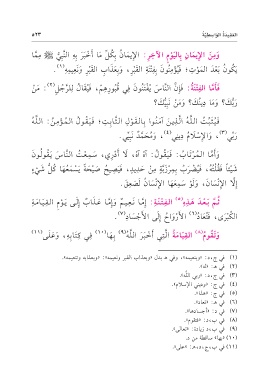 العقيدة الواسطية
٥٢٣
وَمِنَ الإِيمَانِ بِاليَوْمِ الآخِرِ: الإِيمَانُ بِكُلِّ مَا أَخْبَرَ بِهِ النَّبِيُّ ﷺ مِمَّا
يَكُونُ بَعْدَ المَوْتِ؛ فَيُؤْمِنُونَ بِفِتْنَةِ القَبْرِ، وَبِعَذَابِ القَبْرِ وَنَعِيمِهِ(١).
فَأَمَّا الفِتْنَةُ: فَإِنَّ النَّاسَ يُفْتَنُونَ فِي قُبُورِهِمْ، فَيُقَالُ لِلرَّجُلِ(٢): مَنْ
رَبُّكَ؟ وَمَا دِينُكَ؟ وَمَنْ نَبِيُّكَ؟
فَيُثَبِّتُ اللَّهُ الَّذِينَ آمَنُوا بِالقَوْلِ الثَّابِتِ؛ فَيَقُولُ المُؤْمِنُ: اللَّهُ
رَبِّي(٣)، وَالإِسْلَامُ دِينِي(٤)، وَمُحَمَّدٌ نَبِيِّي.
وَأَمَّا المُرْتَابُ: فَيَقُولُ: آهْ آهْ، لَا أَدْرِي، سَمِعْتُ النَّاسَ يَقُولُونَ
شَيْئاً فَقُلْتُهُ، فَيُضْرَبُ بِمِرْزَبَّةٍ مِنْ حَدِيدٍ، فَيَصِيحُ صَيْحَةً يَسْمَعُهَا كُلُّ شَيْءٍ
إِلَّا الإِنْسَانَ، وَلَوْ سَمِعَهَا الإِنْسَانُ لَصَعِقَ.
ثُمَّ بَعْدَ هَذِهِ(٥) الفِتْنَةِ: إِمَّا نَعِيمٌ وَإِمَّا عَذَابٌ إِلَى يَوْمِ القِيَامَةِ
الكُبْرَى، فَتُعَادُ(٦) الأَرْوَاحُ إِلَى الأَجْسَادِ(٧).
وَتَقُومُ(٨) القِيَامَةُ الَّتِي أَخْبَرَ اللَّهُ(٩) بِهَا(١٠) فِي كِتَابِهِ، وَعَلَى(١١)
(٢) في هـ: «له».
(٣) في ج، د: «ربي الله».
(٤) في ج: «وديني الإسلام».
(٥) في ج: «هذا».
(٦) في هـ: «تعاد».
(٧) في د: «أجسادها».
(٨) في ب، د: «فتقوم».
(٩) في ب، د زيادة: «تعالى».
(١٠) «بها» ساقطة من د.
(١١) في ب، ج، د، هـ: «على».